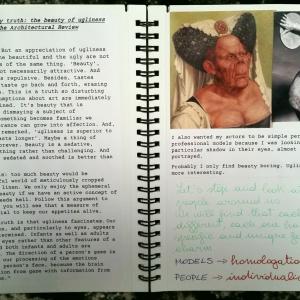 y truth: the beauty of ugliness
he Architectural Review
But an appreciation of ugliness
he beautiful and the ugly are not
s of the same thing. 'Beauty',
ot necessarily attractive. And
s repulsive. Besides, tastes
taste go back and forth, erasing
s. This is a truth so disturbing
mptions about art are immediately
ined. It's beauty that is
dismaying a subject of
something becomes familiar we
rance can grow into affection. And,
remarked, 'ugliness is superior to
asts longer'. Maybe a thing of
orever. Beauty is a sedative,
thing rather than challenging. And
sedated and soothed is better than
too much beauty would be
ful world of meticulously cropped
lism. We only enjoy the ephemeral
eauty if we have an active concept of
eeds hell. Follow this argument to
you will see that a measure of
ial to keep our appetites alive.
ruth is that ugliness fascinates. Our
s, and particularly to eyes, appears
rmined. Infants as well as adults
eyes rather than other features of a
both infants and adults are
the direction of a person's gaze is
our processing of the emotions
person's face, because the brain
tion from gaze with information from
I also wanted my actors to be simple per
professional models because I was lookin
particular shadow in their eyes, almost
portrayed.
Probably I only find beauty boring. Ugli
more interesting.
let's stop and look
people around us
we will find that each
different, each one has
specific and unique
charm
MODELS → homologation
PEOPLE → individuali